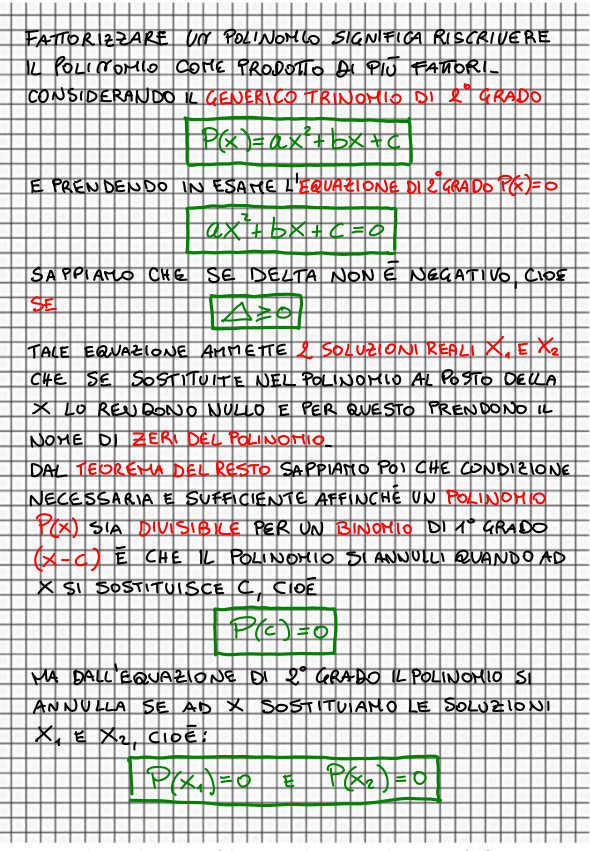 FATTORIZZARE UN POLINOMIO SIGNIFICA RISCRIVERE
IL POLINOMIO COME PRODOTTO DI PIÙ FATTORI_
CONSIDERANDO IL GENERICO TRINOMIO DI 2° GRADO
P(x)=ax²+bx+c
E PRENDENDO IN ESAME L'EQUAZIONE DI 2° GRADO P(x)=0
ax²+bx+c=0
SAPPIAMO CHE SE DELTA NON È NEGATIVO, CIOÈ
SE Δ≥0
TALE EQUAZIONE AMMETTE 2 SOLUZIONI REALI X₁ E X₂
CHE SE SOSTITUITE NEL POLINOMIO AL POSTO DELLA
X LO RENDONO NULLO E PER QUESTO PRENDONO IL
NOME DI ZERI DEL POLINOMIO_
DAL TEOREMA DEL RESTO SAPPIAMO POI CHE CONDIZIONE
NECESSARIA E SUFFICIENTE AFFINCHÉ UN POLINOMIO
P(x) SIA DIVISIBILE PER UN BINOMIO DI 1° GRADO
(x-c) È CHE IL POLINOMIO SI ANNULLI QUANDO AD
X SI SOSTITUISCE C, CIOÈ
P(c)=0
MA DALL'EQUAZIONE DI 2° GRADO IL POLINOMIO SI
ANNULLA SE AD X SOSTITUIAMO LE SOLUZIONI
X₁ E X₂, CIOÈ:
P(x₁)=0 E P(x₂)=0